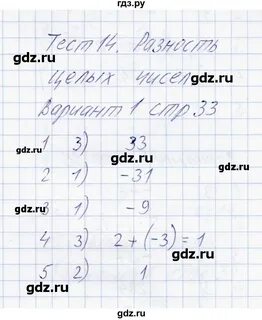 гдз.ру
Тест 14. Разность
целых чисел
Вариант 1 стр. 33
1 3) 33
2 1) -31
3 1) -9
4 3) 2 + (-3) = 1
5 2) 1
gdz.ru
gdz.ru
gdz.ru
gdz.ru
gdz.ru
gdz.ru
gdz.ru
gdz.ru